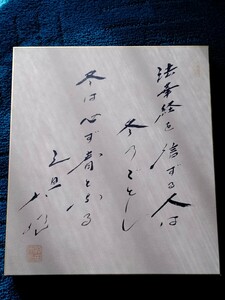 法華経を信ずる人は
冬のごとし
冬は必ず春となる
大作